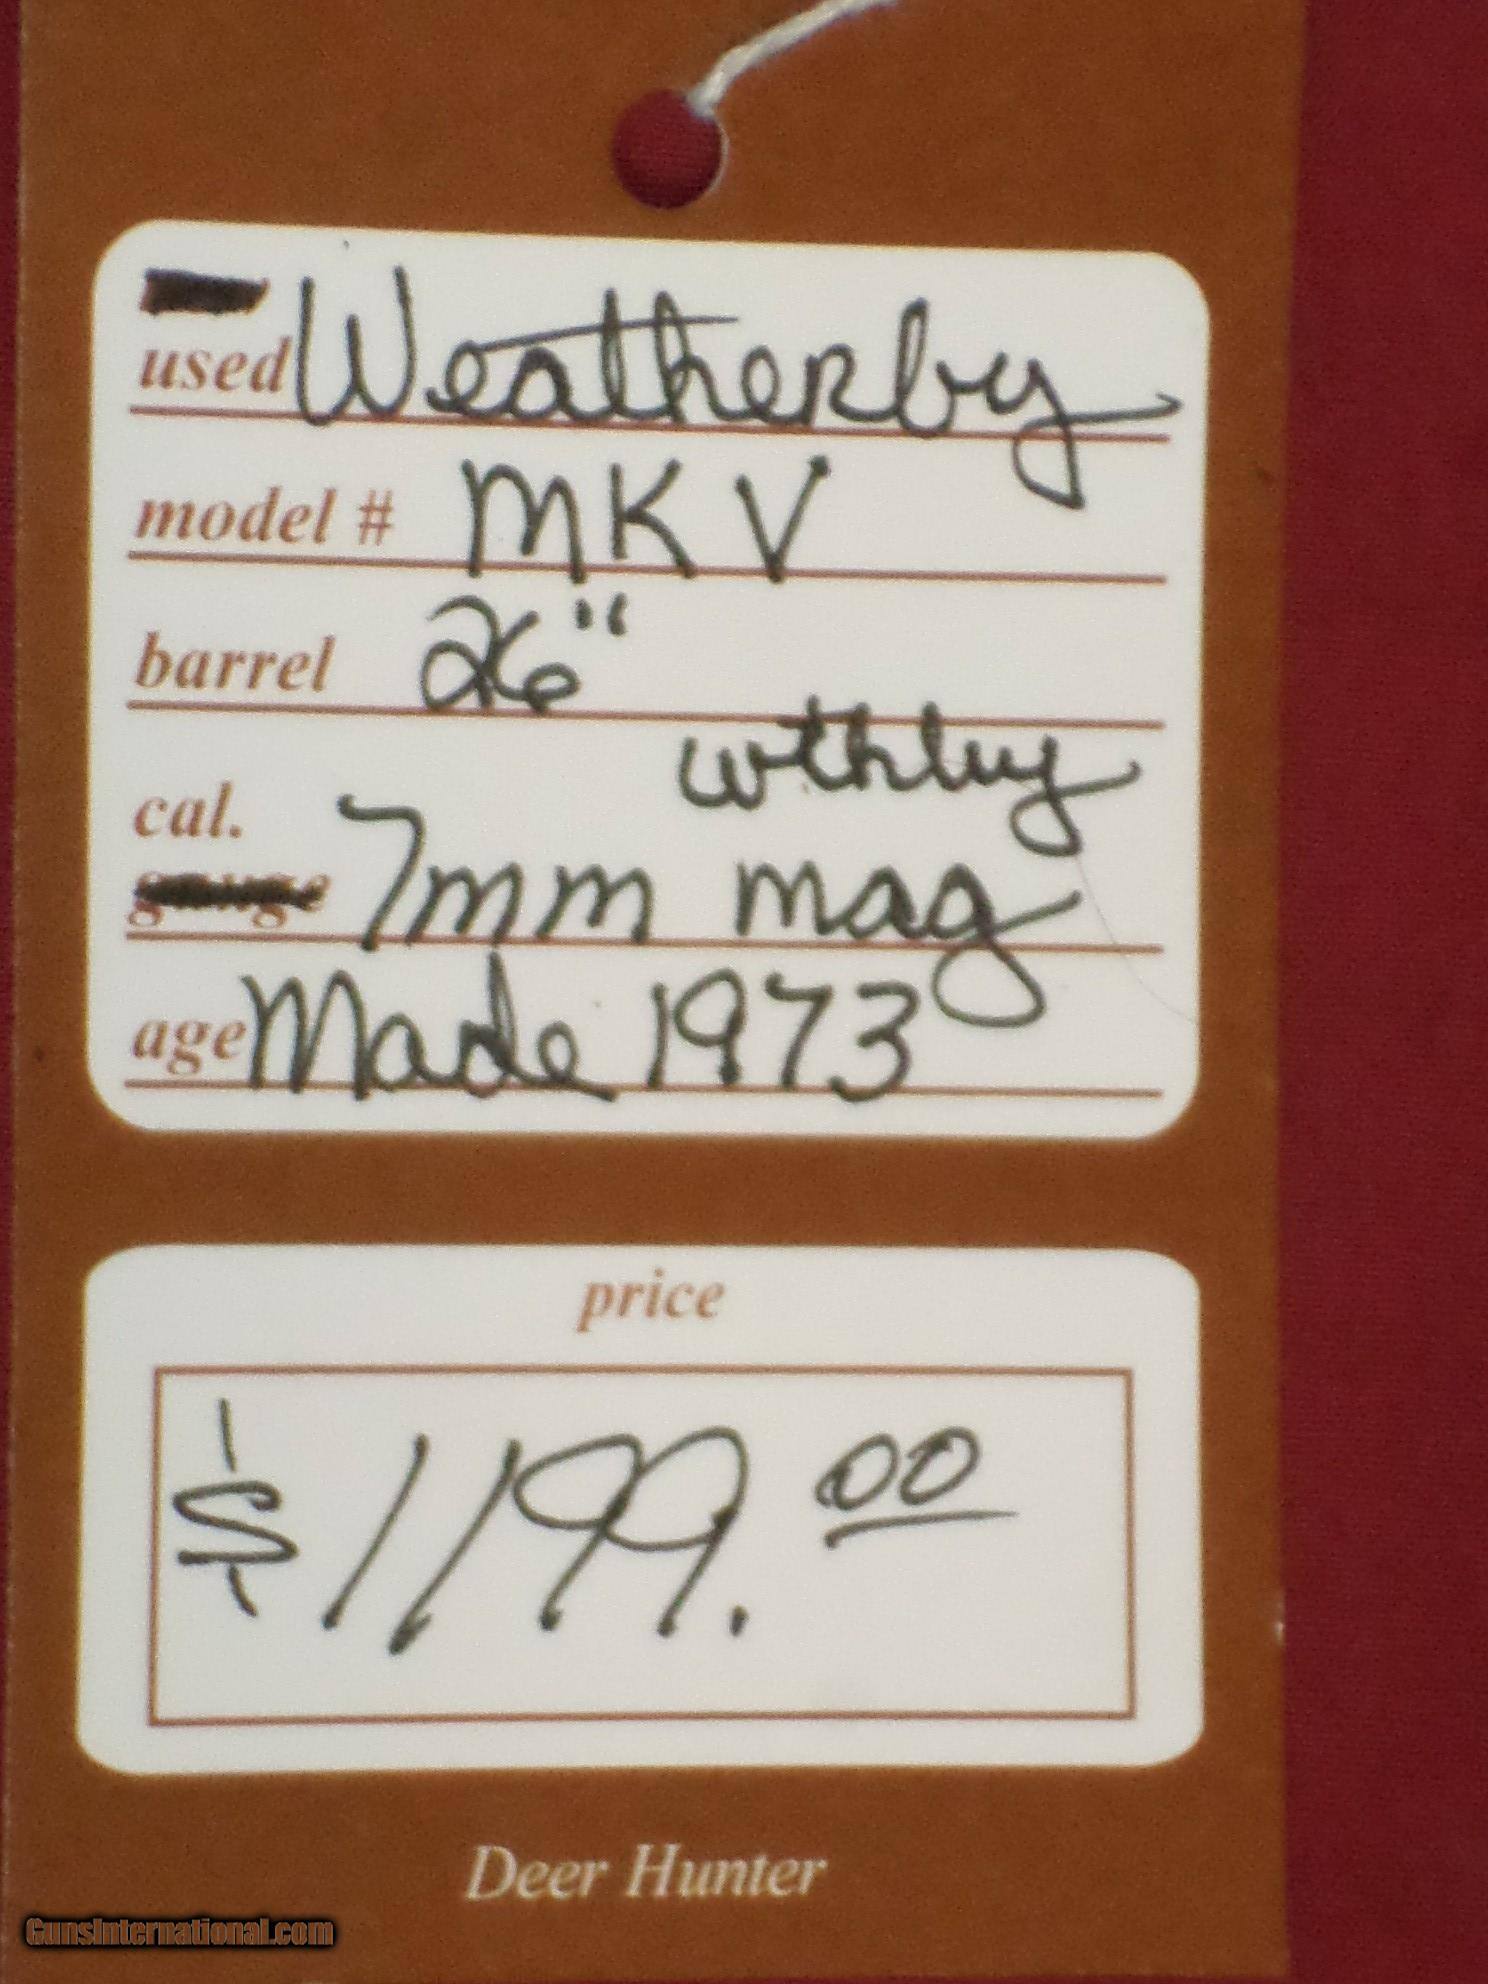 used Weatherby
model # MKV
barrel 26"
wthby
cal.
gauge 7mm mag
age Made 1973
price
$1199.00
Deer Hunter
GunsInternational.com